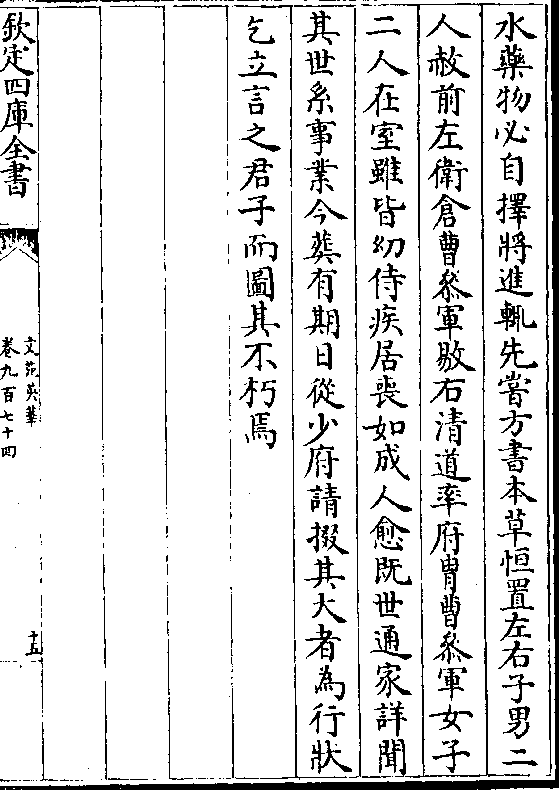 水藥物必自擇將進輒先嘗方書本草恒置左右子男二
人赦前左衛倉曹叅軍敭右清道率府胄曹叅軍女子
二人在室雖皆㓜侍疾居喪如成人愈既世通家詳聞
其世系事業今葬有期日從少府請掇其大者為行狀
乞立言之君子而圖其不朽焉
欽定四庫全書
文苑英華
卷九百七十四
十五